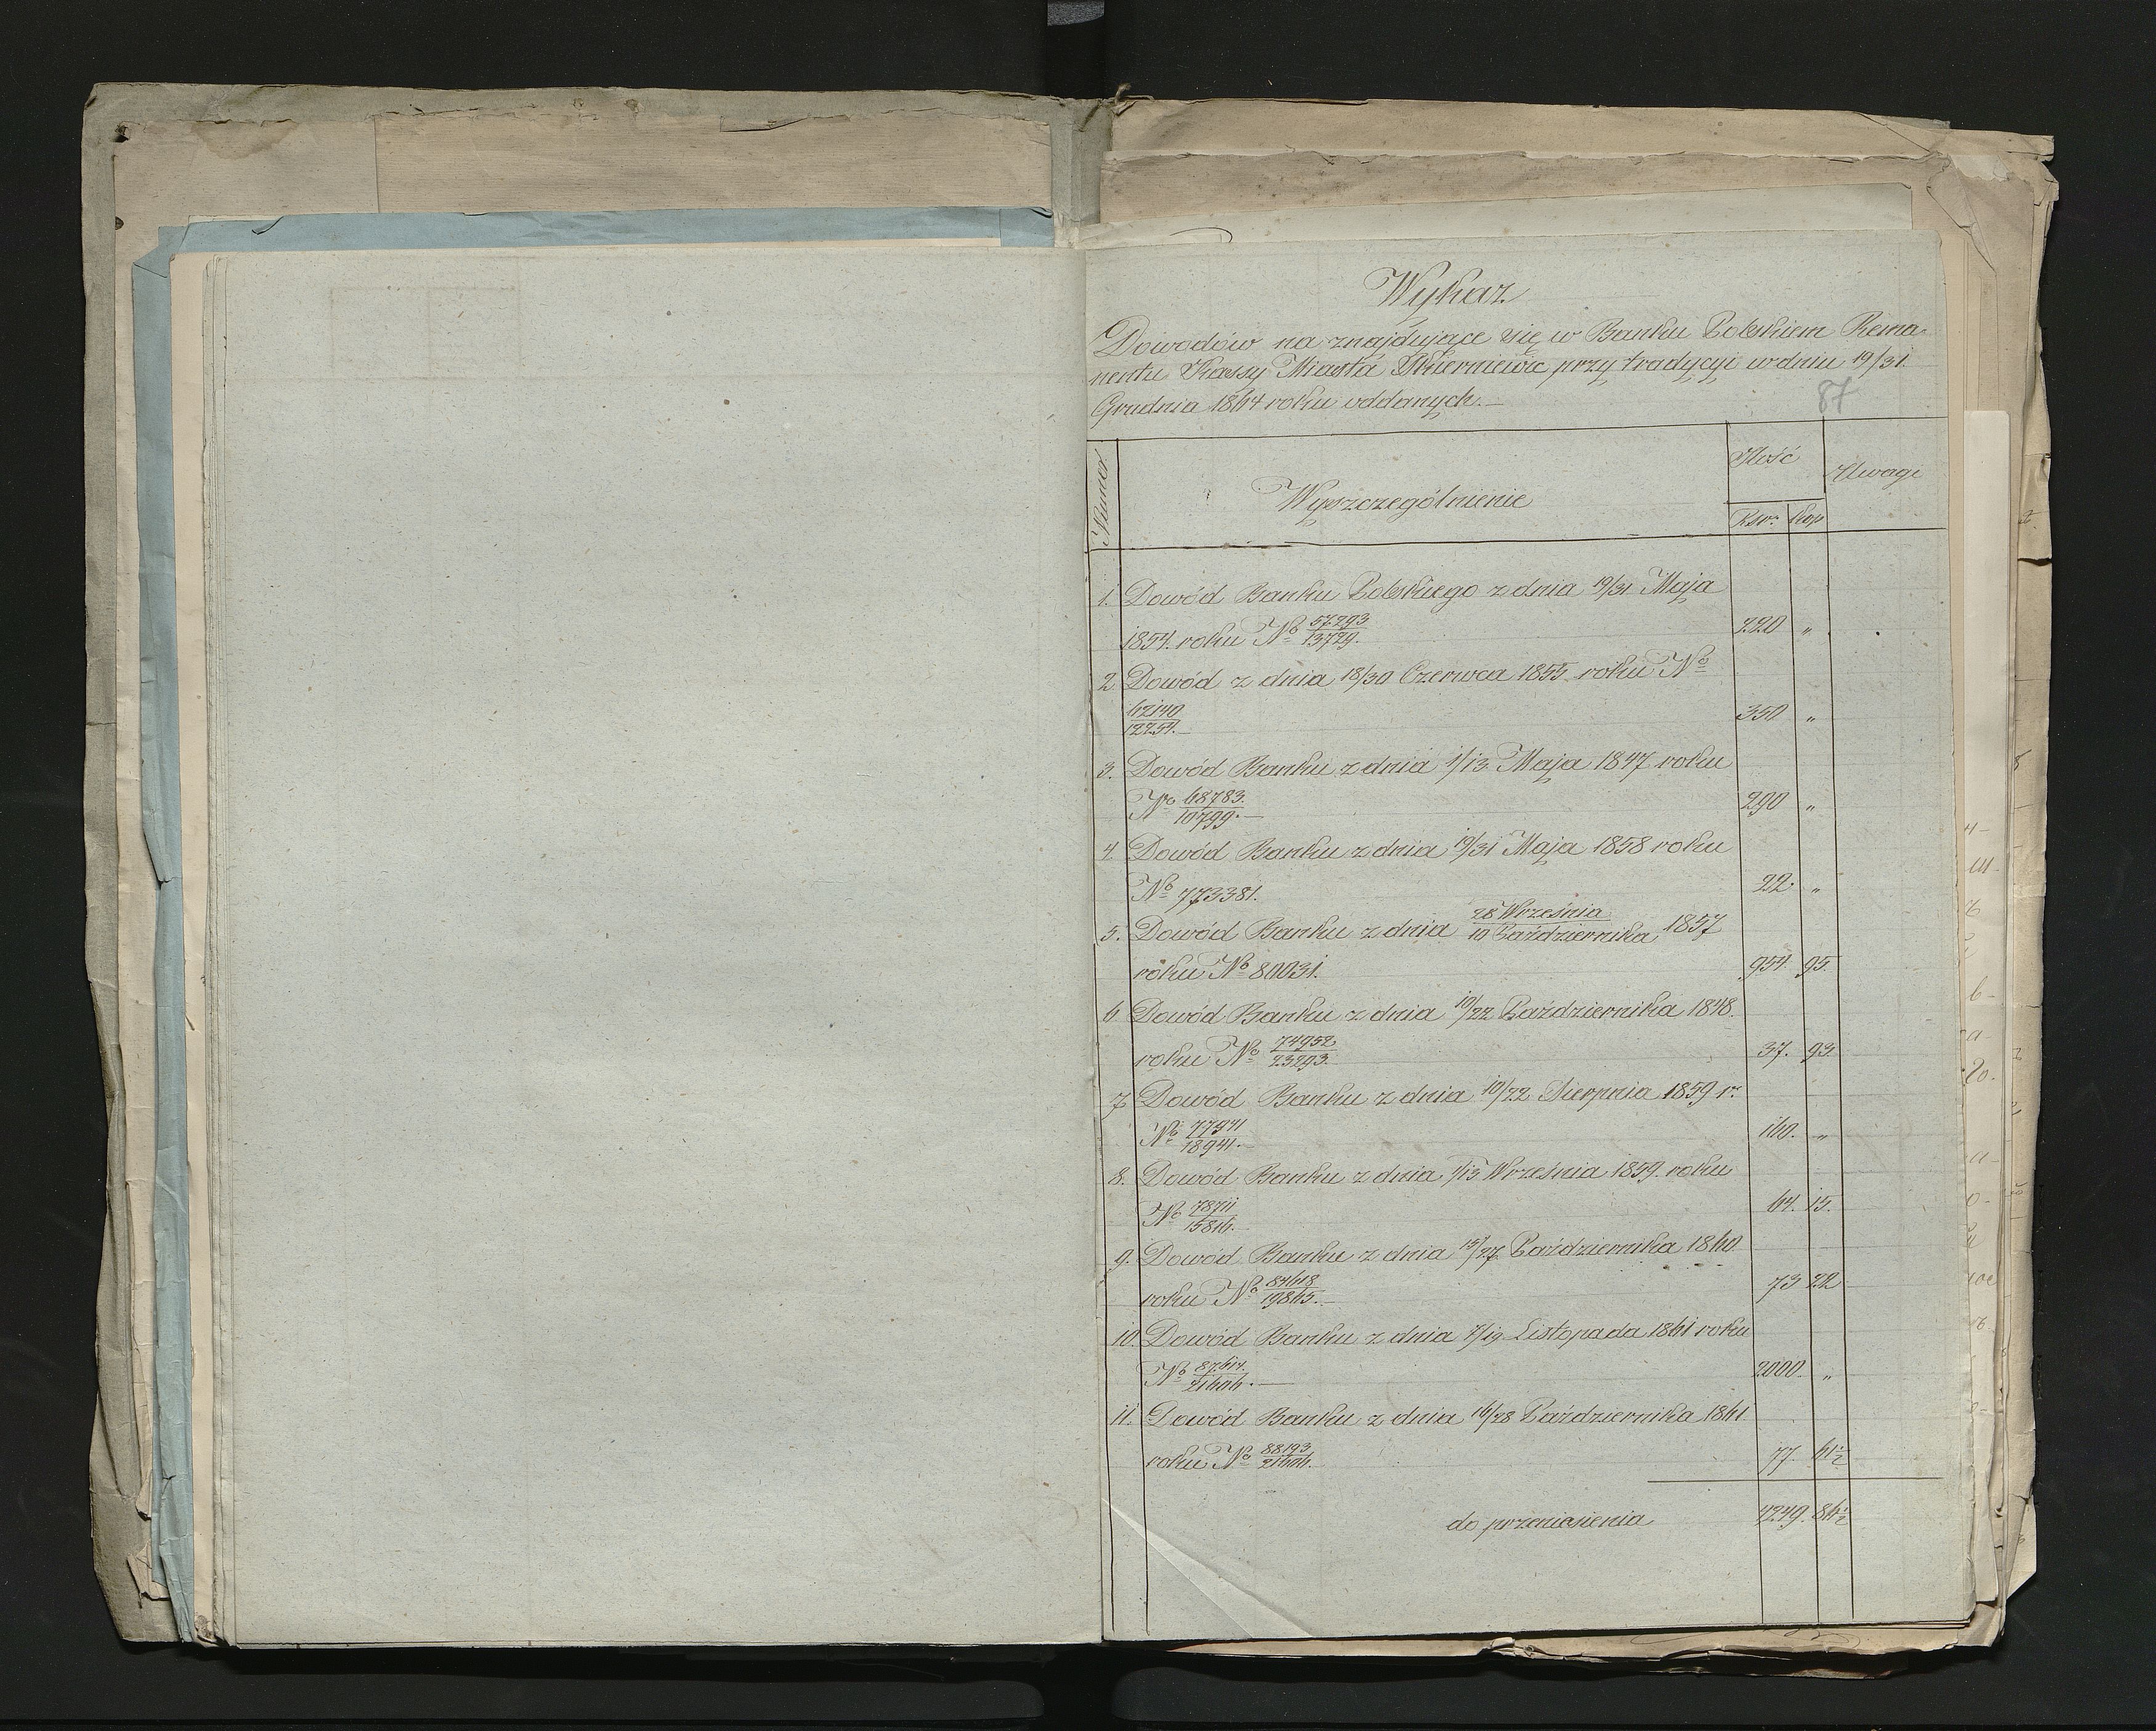 Wykaz
Dowodów na znajdujące się w Banku Polskiem Rema-
nentu Kassy Miasta Skierniewic przy tradycyi w dniu 19/31
Grudnia 1864 roku oddanych.—
87
Numer
Wyszczególnienie
Ilość
Uwagi
Rsr. Kop
1. Dowód Banku Polskiego z dnia 19/31 Maja
1854. roku No 57293/13729. 220 "
2 Dowód z dnia 18/30 Czerwca 1855 roku No
62140/12254.— 350 "
3. Dowód Banku z dnia 1/13 Maja 1847 roku
No 68783./10799.— 290 "
4. Dowód Banku z dnia 19/31 Maja 1858 roku
No 773381. 22. "
5. Dowód Banku z dnia 28 Września/10 Października 1857
roku No 80031. 954. 95.
6 Dowód Banku z dnia 10/22 Października 1848.
roku No 74952/23293. 37. 93
7. Dowód Banku z dnia 10/22 Sierpnia 1859 r.
No 77971/18941.— 160. "
8. Dowód Banku z dnia 1/13 Września 1859. roku
No 78711/15816.— 64. 15.
9. Dowód Banku z dnia 15/27 Października 1860.
roku No 84618/19865.— 73 22
10. Dowód Banku z dnia 7/19 Listopada 1861 roku
No 87614./21606.— 2000. "
11. Dowód Banku z dnia 16/28 Października 1861
roku No 88193/21606. 77. 61½
do przeniesienia 4249. 86½